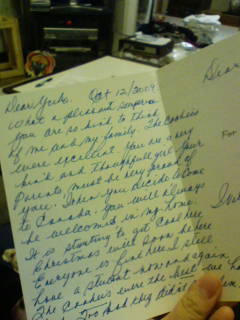 Dear Yuko, Oct 12/2009
What a pleasant surprise
you are so kind to think
of me and my family. The cookies
were excellent. You are a very
kind and thoughtfull girl your
Parents, must be very proud of
you. When you decide to come
to Canada. You will always
be welcomed in my home.
It is starting to get cool here
Christmas will soon be here
Everyone is fine here I still
have a student now and again.
The cookies were the best we ha
Too bad they didn't
Dear
For